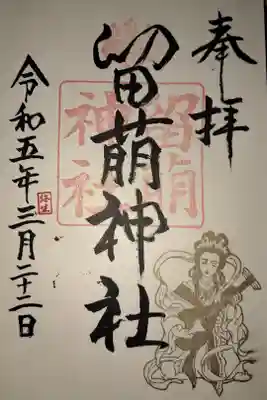 奉拝
留萌神社
留萌
神社
令和五年三月二十二日